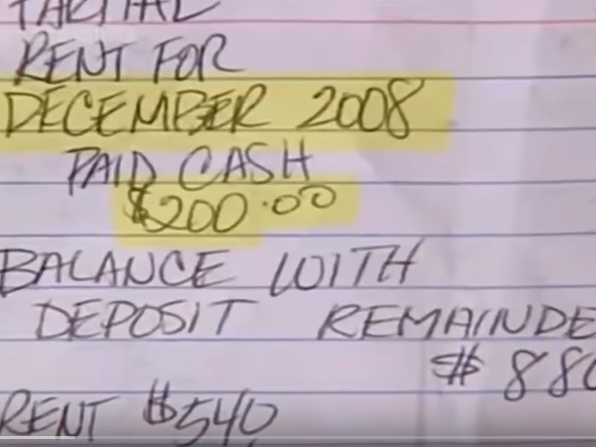 PARTIAL
RENT FOR
DECEMBER 2008
PAID CASH
$200.00
BALANCE WITH
DEPOSIT REMAINDE
$ 880
RENT $540